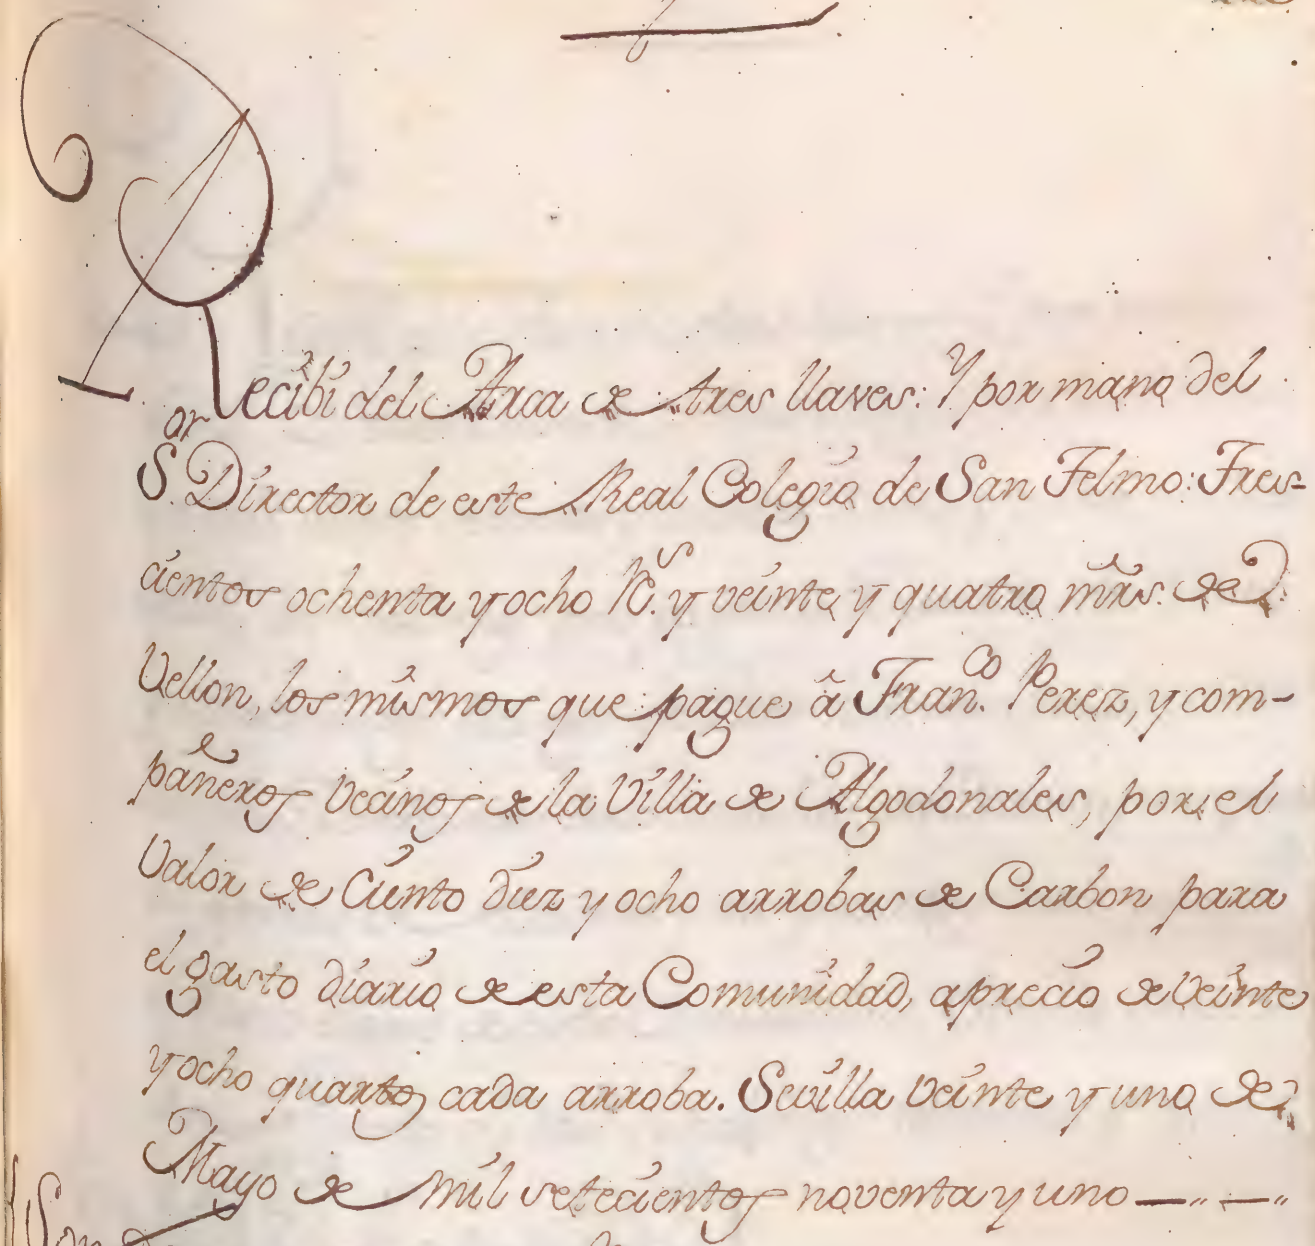 Recibi del Arca de tres llaves: Y por mano del
S.or Director de este Real Colegio de San Telmo: Tres-
cientos ochenta y ocho R.s y veinte, y quatro mrs. de
Vellon, los mismos que pague â Fran.co Perez, y com-
pañeros Vecinos de la Villa de Algodonales, por el
Valor de Ciento diez y ocho arrobas de Carbon para
el gasto diario de esta Comunidad, a precio de Veinte
y ocho quartos cada arroba. Sevilla Veinte y uno de
Mayo de mil setecientos noventa y uno
Son